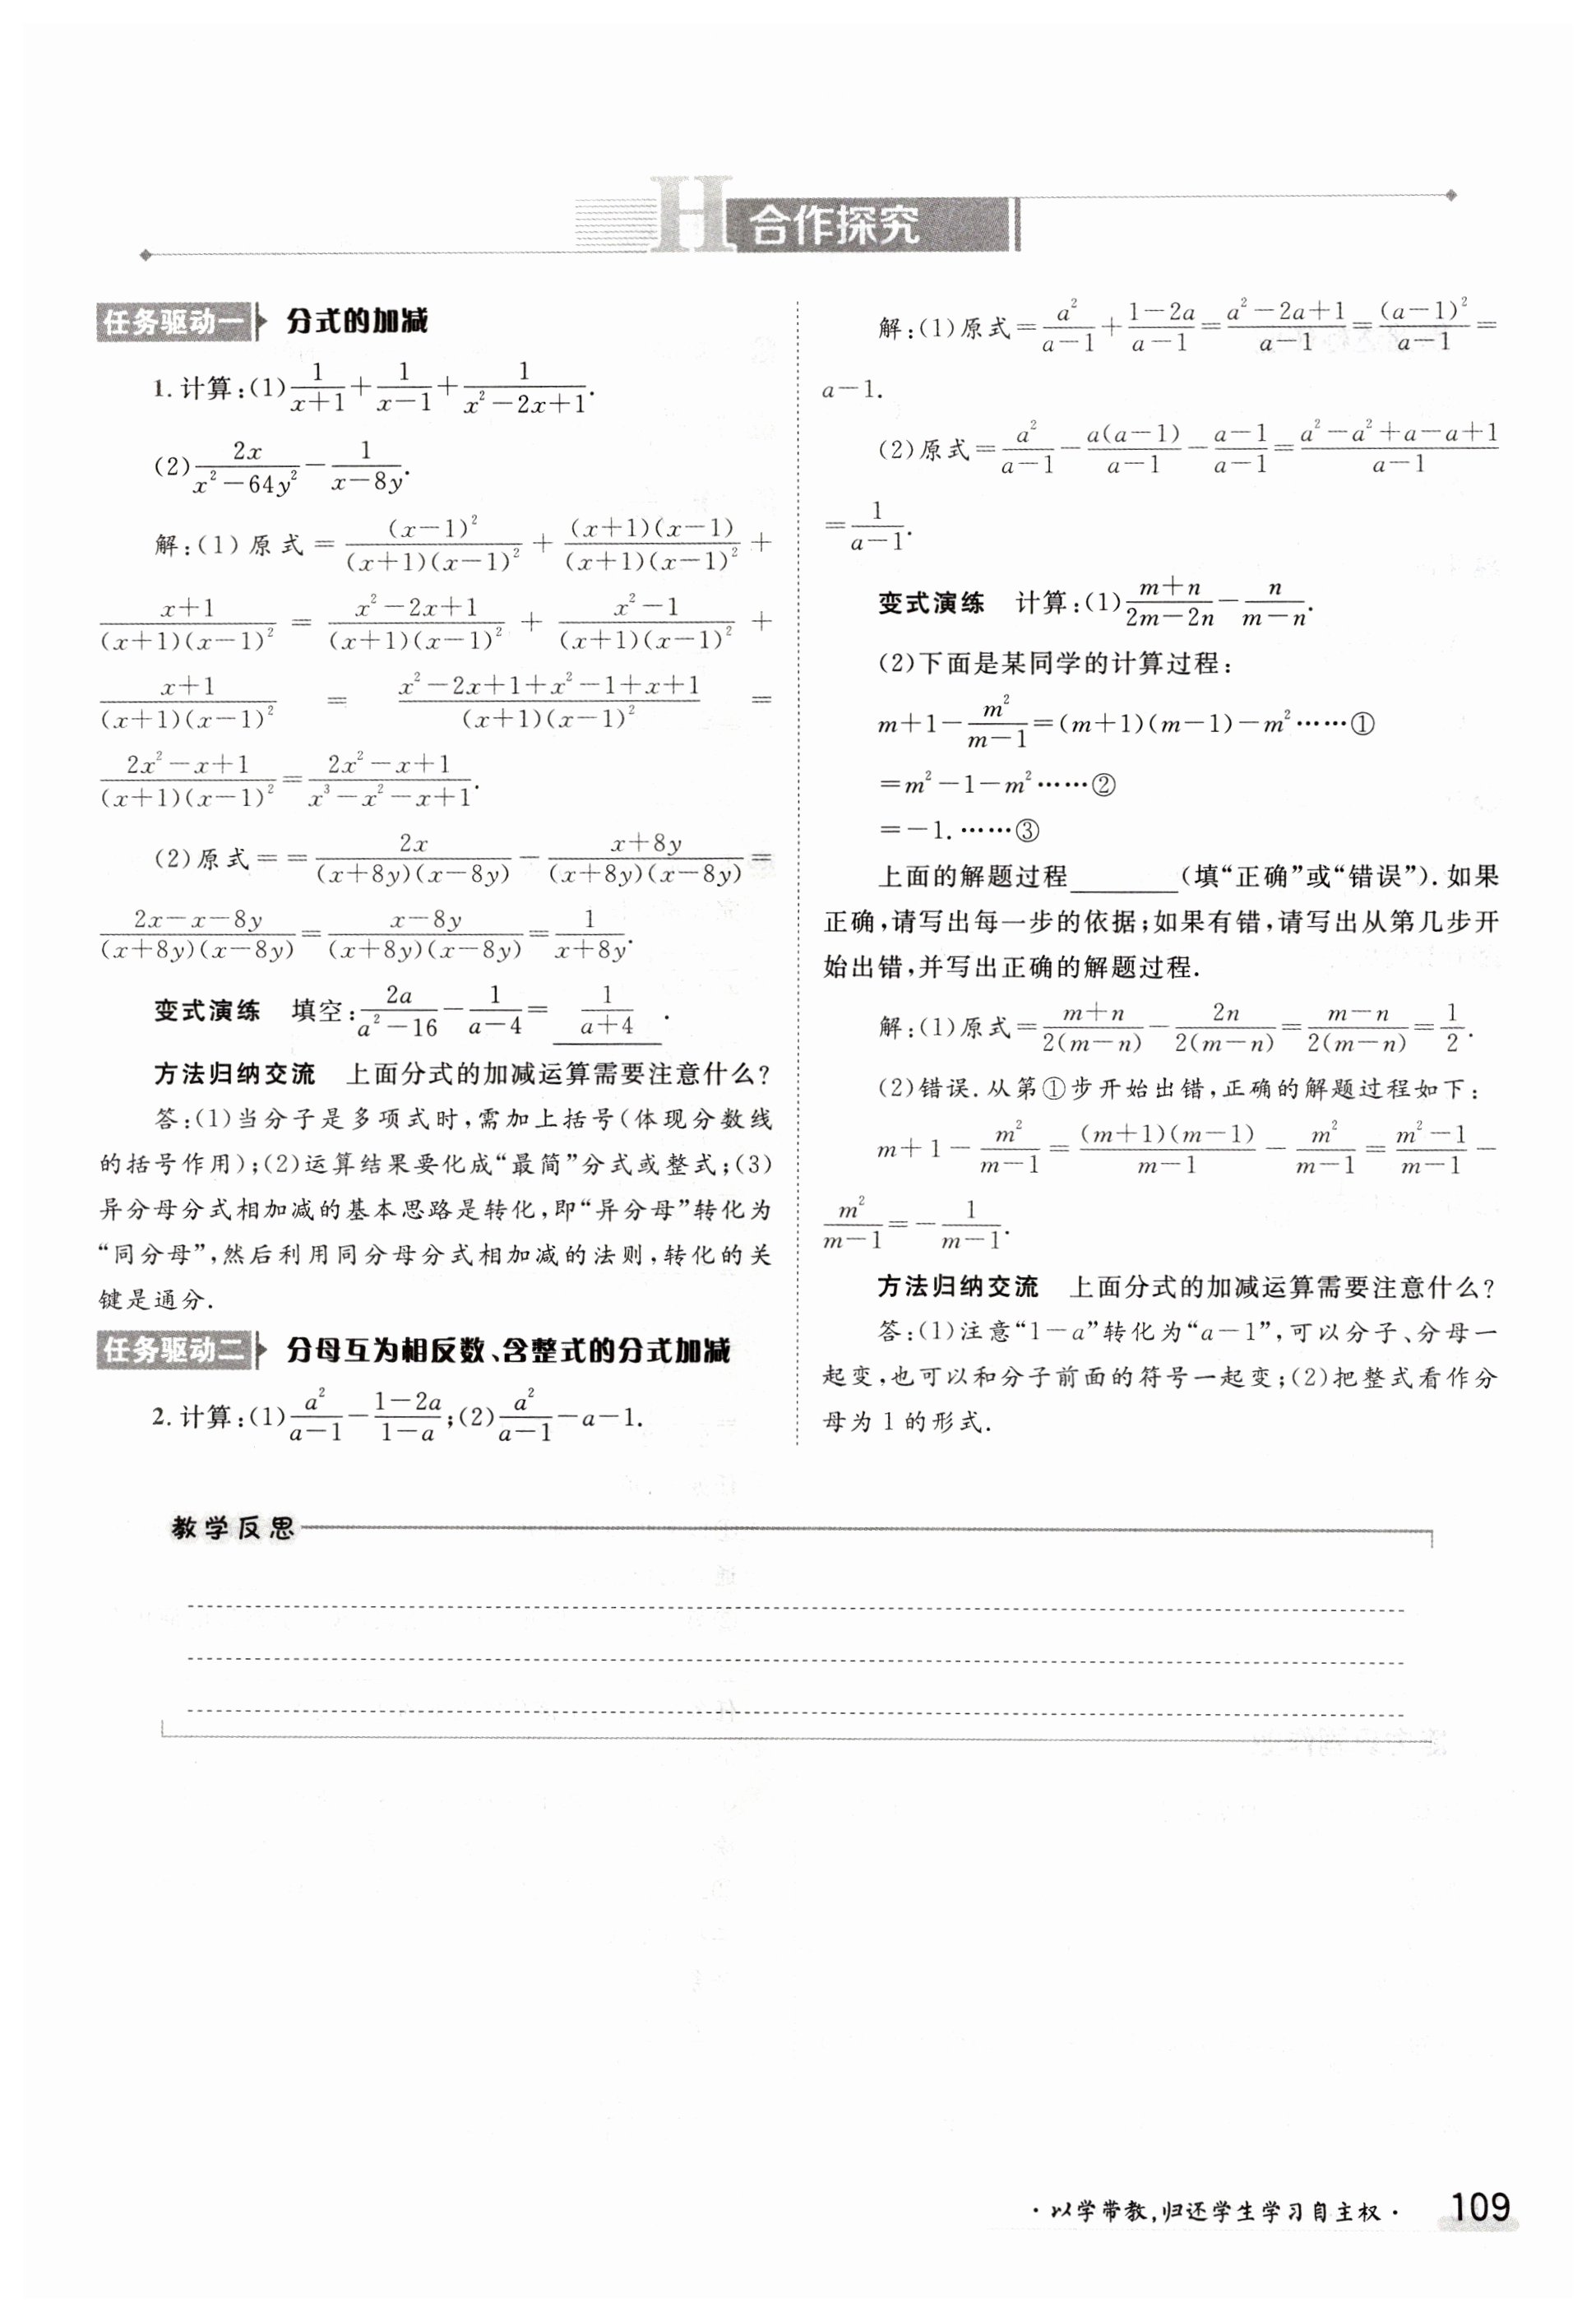 H 合作探究
任务驱动一 分式的加减
1. 计算:(1) \frac{1}{x+1}+\frac{1}{x-1}+\frac{1}{x^2-2x+1}.
(2) \frac{2x}{x^2-64y^2}-\frac{1}{x-8y}.
解:(1)原式=\frac{(x-1)^2}{(x+1)(x-1)^2}+\frac{(x+1)(x-1)}{(x+1)(x-1)^2}+
\frac{x+1}{(x+1)(x-1)^2}=\frac{x^2-2x+1}{(x+1)(x-1)^2}+\frac{x^2-1}{(x+1)(x-1)^2}+
\frac{x+1}{(x+1)(x-1)^2}=\frac{x^2-2x+1+x^2-1+x+1}{(x+1)(x-1)^2}=
\frac{2x^2-x+1}{(x+1)(x-1)^2}=\frac{2x^2-x+1}{x^3-x^2-x+1}.
(2)原式==\frac{2x}{(x+8y)(x-8y)}-\frac{x+8y}{(x+8y)(x-8y)}=
\frac{2x-x-8y}{(x+8y)(x-8y)}=\frac{x-8y}{(x+8y)(x-8y)}=\frac{1}{x+8y}.
变式演练 填空:\frac{2a}{a^2-16}-\frac{1}{a-4}=\frac{1}{a+4}.
方法归纳交流 上面分式的加减运算需要注意什么?
答:(1)当分子是多项式时,需加上括号(体现分数线
的括号作用);(2)运算结果要化成“最简”分式或整式;(3)
异分母分式相加减的基本思路是转化,即“异分母”转化为
“同分母”,然后利用同分母分式相加减的法则,转化的关
键是通分.
任务驱动二 分母互为相反数、含整式的分式加减
2. 计算:(1) \frac{a^2}{a-1}-\frac{1-2a}{1-a};(2) \frac{a^2}{a-1}-a-1.
解:(1)原式=\frac{a^2}{a-1}+\frac{1-2a}{a-1}=\frac{a^2-2a+1}{a-1}=\frac{(a-1)^2}{a-1}=
a-1.
(2)原式=\frac{a^2}{a-1}-\frac{a(a-1)}{a-1}-\frac{a-1}{a-1}=\frac{a^2-a^2+a-a+1}{a-1}
=\frac{1}{a-1}.
变式演练 计算:(1) \frac{m+n}{2m-2n}-\frac{n}{m-n}.
(2)下面是某同学的计算过程:
m+1-\frac{m^2}{m-1}=(m+1)(m-1)-m^2……①
=m^2-1-m^2……②
=-1.……③
上面的解题过程________(填“正确”或“错误”).如果
正确,请写出每一步的依据;如果有错,请写出从第几步开
始出错,并写出正确的解题过程.
解:(1)原式=\frac{m+n}{2(m-n)}-\frac{2n}{2(m-n)}=\frac{m-n}{2(m-n)}=\frac{1}{2}.
(2)错误.从第①步开始出错,正确的解题过程如下:
m+1-\frac{m^2}{m-1}=\frac{(m+1)(m-1)}{m-1}-\frac{m^2}{m-1}=\frac{m^2-1}{m-1}-
\frac{m^2}{m-1}=-\frac{1}{m-1}.
方法归纳交流 上面分式的加减运算需要注意什么?
答:(1)注意“1-a”转化为“a-1”,可以分子、分母一
起变,也可以和分子前面的符号一起变;(2)把整式看作分
母为1的形式.
教学反思
·以学带教,归还学生学习自主权· 109